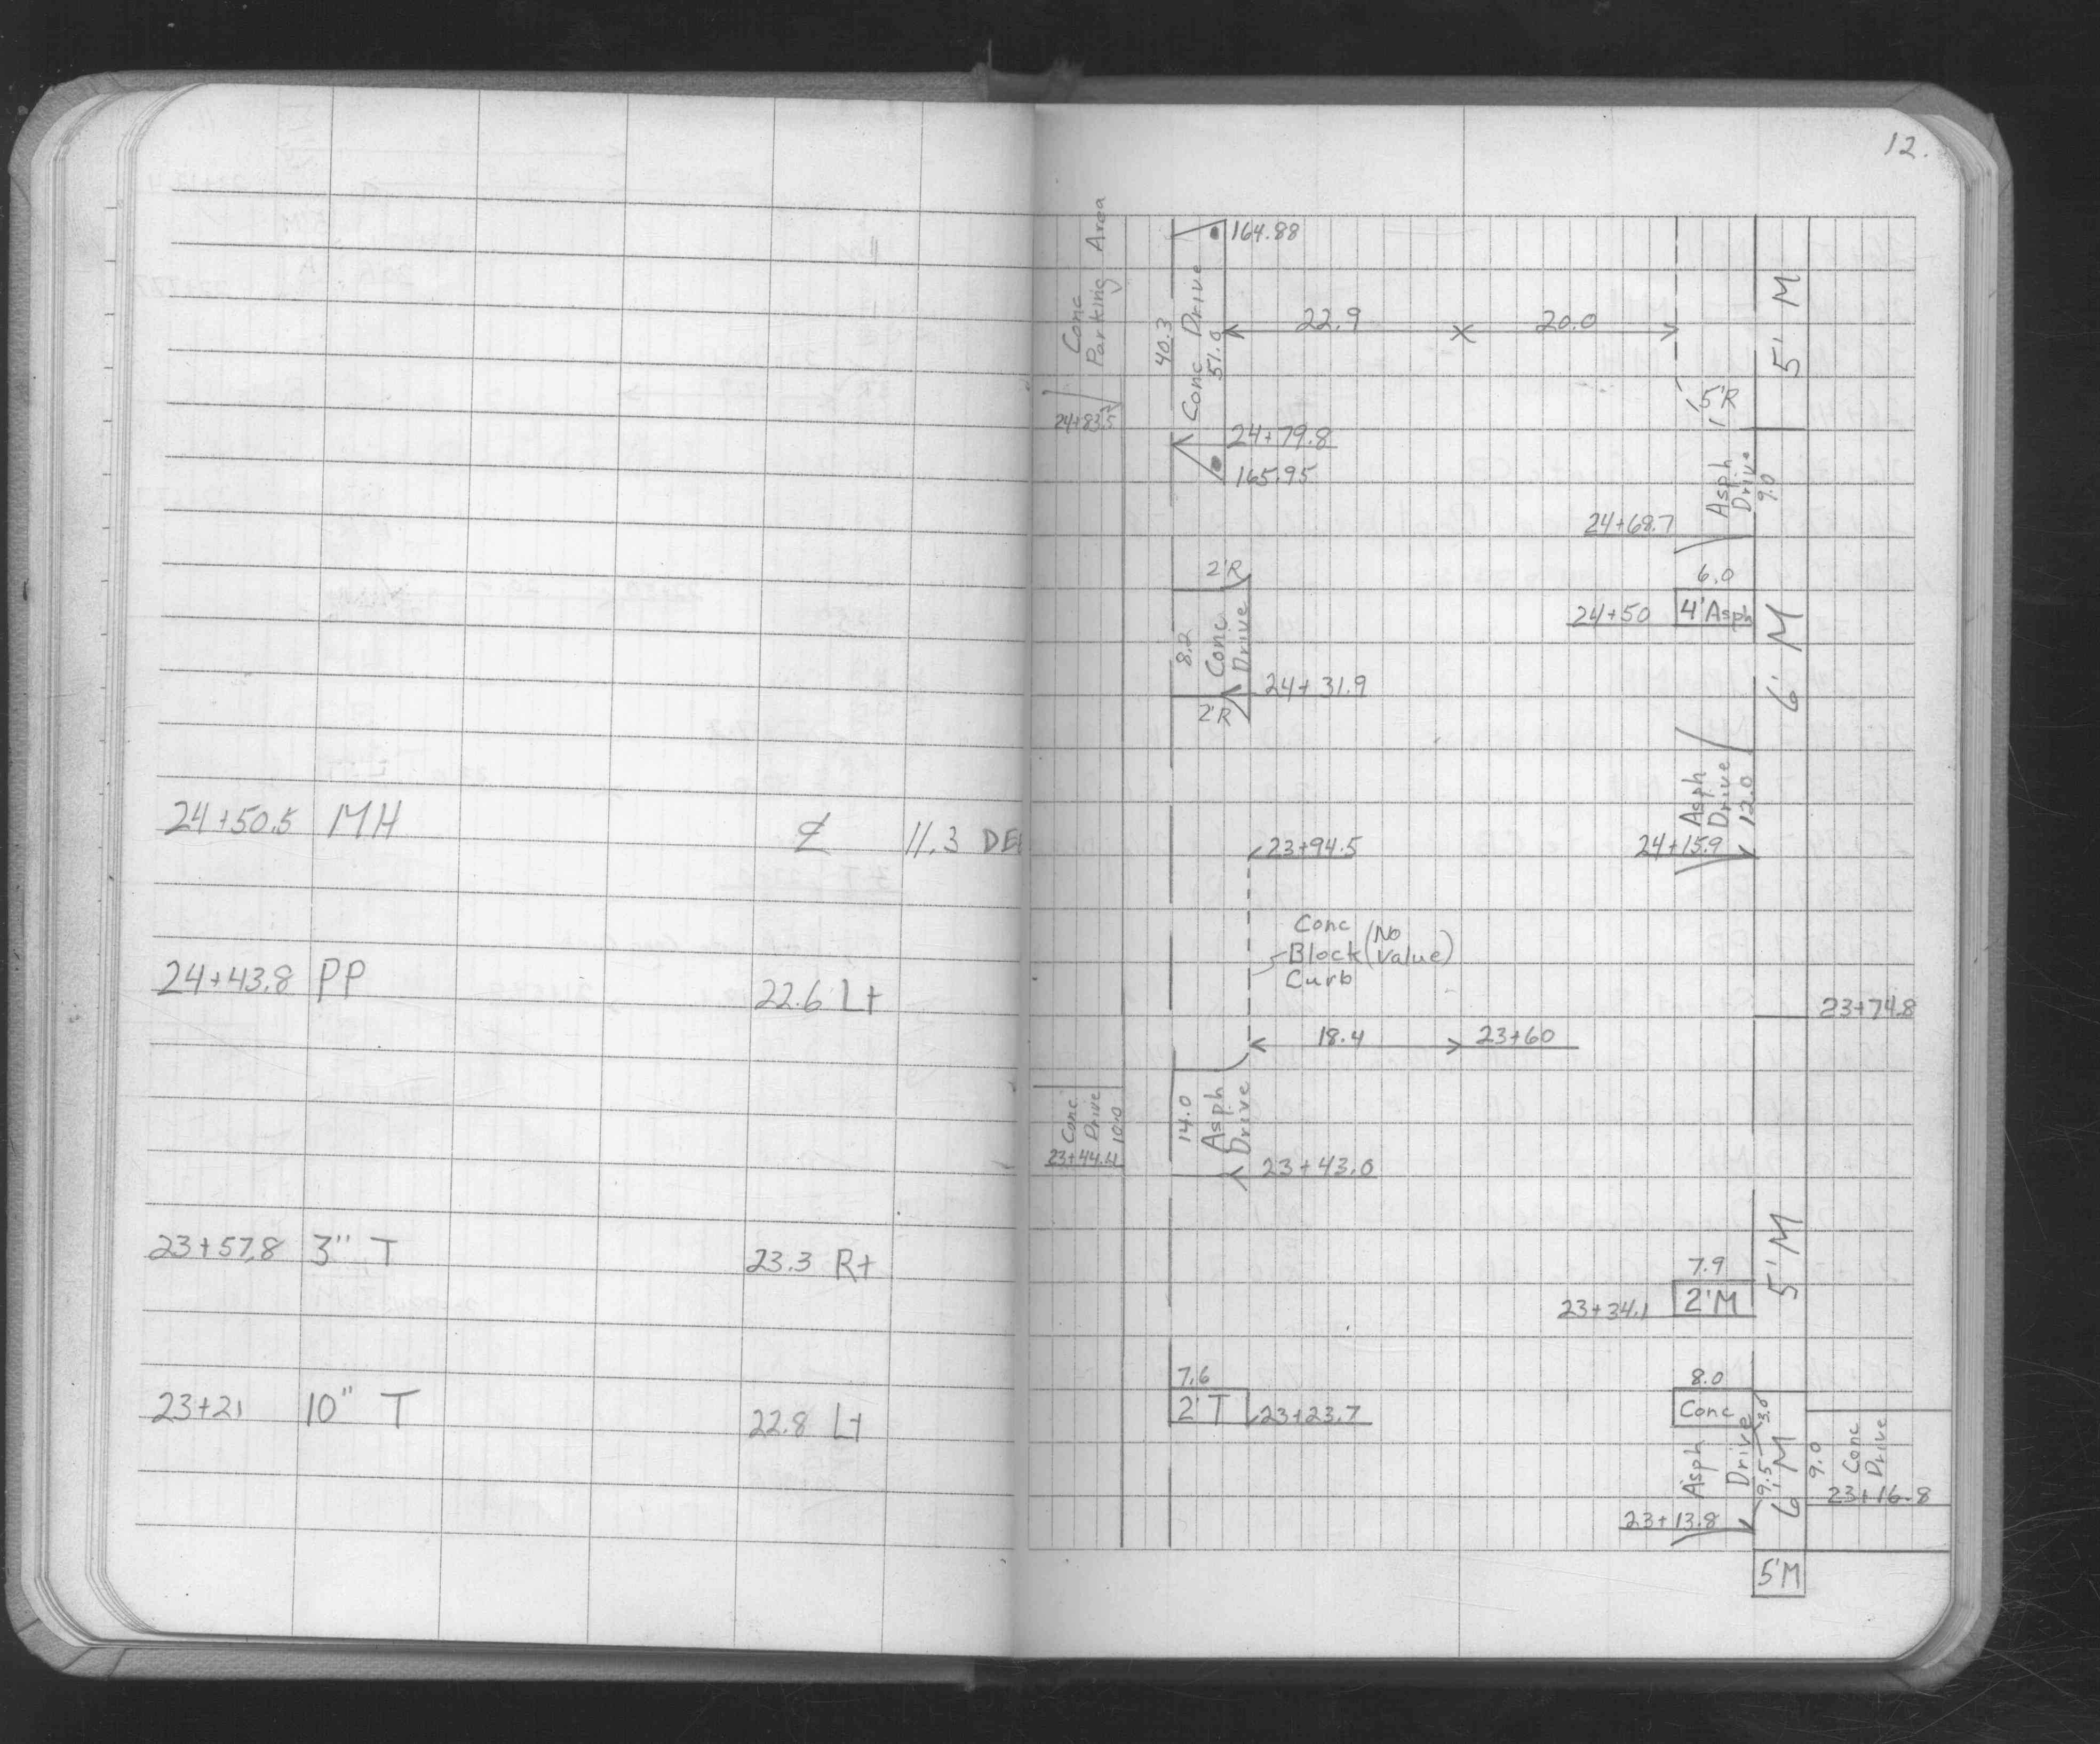 24+50.5 MH ℄ 11.3 DE
24+43.8 PP 22.6 Lt
23+57.8 3" T 23.3 Rt
23+21 10" T 22.8 Lt
12.
Conc
Parking Area
24+83.5
164.88
40.3
Conc Drive
22.9 20.0
5' M
5'R
24+79.8
165.95
Asph
Drive
9.0
24+68.7
6.0
24+50 4' Asph
2'R
8.2
Conc
Drive
24+31.9
2'R
6' M
Asph
Drive
12.0
24+15.9
23+94.5
Conc
Block
Curb
(No
Value)
23+74.8
18.4 23+60
14.0
Asph
Drive
23+43.0
Conc
Drive
10.0
23+44.4
5' M
7.9
23+34.1 2'M
7.6
2' T 23+23.7
8.0
Conc
3.0
Asph
Drive
9.5
6' M
23+13.8
9.0
Conc
Drive
23+16.8
5'M